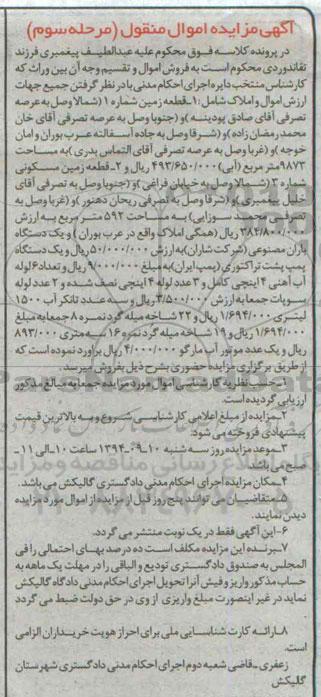 آگهی مزایده اموال منقول (مرحله سوم)
در پرونده کلاسه فوق محکوم علیه عبدالطیف پیغمبری فرزند
تقاندوردی محکوم است به فروش اموال و تقسیم وجه آن بین وراث که
کارشناس منتخب دایره اجرای احکام مدنی با در نظر گرفتن جمیع جهات
ارزش اموال و املاک شامل :۱ـ قطعه زمین شماره ۱ (شمالا وصل به عرصه
تصرفی آقای صادق پودینه )و (جنوبا وصل به عرصه تصرفی آقای خان
محمد رمضان زاده )و (شرقا وصل به جاده آسفالته عرب بوران و امان
خوجه )و (غربا وصل به عرصه تصرفی آقای التماس بدری )به مساحت
۹۸۷۳متر مربع (آبی) ۴۹۳/۶۵۰/۰۰۰ ریال و ۲ـ قطعه زمین مسکونی
شماره ۲ (شمالا وصل به خیابان فراغی )و (جنوبا وصل به تصرفی آقای
خلیل پیغمبری)و (شرقا وصل به تصرفی ریحان دهنور )و (غربا وصل به
تصرفی محمد سوزایی) به مساحت ۵۹۲ متر مربع به ارزش
۳۸۴/۸۰۰/۰۰۰ ریال (همگی املاک واقع در عرب بوران ) و یک دستگاه
باران مصنوعی (شرکت شاران)به ارزش ۵۰/۰۰۰/۰۰۰ ریال و یک دستگاه
پمپ پشت تراکتوری (پمپ ایران)به مبلغ ۹/۰۰۰/۰۰۰ ریال و تعداد ۶ لوله
آب آهنی ۴ اینچی کامل و ۳ عدد لوله ۴ اینچی نصف شده و ۲ عدد لوله
سوپات جمعا به ارزش ۳/۵۰۰/۰۰۰ ریال و سه عدد تانکر آب ۱۵۰۰
لیتری ۱/۶۹۴/۰۰۰ ریال و ۲۲ شاخه میله گرد نمره ۸ جمعا به مبلغ
۱/۶۹۴/۰۰۰ ریال و ۱۹ شاخه میله گرد نمره ۱۶ سه متری ۸۹۳/۰۰۰
ریال و یک عدد موتور آب مارگو ۴/۰۰۰/۰۰۰ ریال برآورد نموده است که
از طریق برگزاری مزایده حضوری بشرح ذیل بفروش میرسد.
۱ـ حسب نظریه کارشناسی اموال مورد مزایده جمعا به مبالغ مذکور
ارزیابی گردیده است.
۲ـ مزایده از مبلغ اعلامی کارشناسی شروع و به بالاترین قیمت
پیشنهادی فروخته می شود.
۳ـ موعد مزایده روز سه شنبه ۱۰-۰۹-۱۳۹۴ ساعت ۱۰ـ الی ۱۱ـ
صبح می باشد.
۴ـ مکان مزایده اجرای احکام مدنی دادگستری گالیکش می باشد.
۵ـ متقاضیان می توانند پنج روز قبل از مزایده از اموال مورد مزایده
دیدن نمایند.
۶ـ این آگهی فقط در یک نوبت منتشر می گردد.
۷ـ برنده این مزایده مکلف است ده درصد بهای احتمالی را فی
المجلس به صندوق دادگستری تودیع و الباقی را در مهلت یک ماهه به
حساب مذکور واریز و فیش آنرا تحویل اجرای احکام مدنی دادگاه گالیکش
نماید در غیر اینصورت مبلغ واریزی از وی در حق دولت ضبط می گردد
۸ـ ارائه کارت شناسایی ملی برای احراز هویت خریداران الزامی
است.
زعفری ـ قاضی شعبه دوم اجرای احکام مدنی دادگستری شهرستان
گالیکش